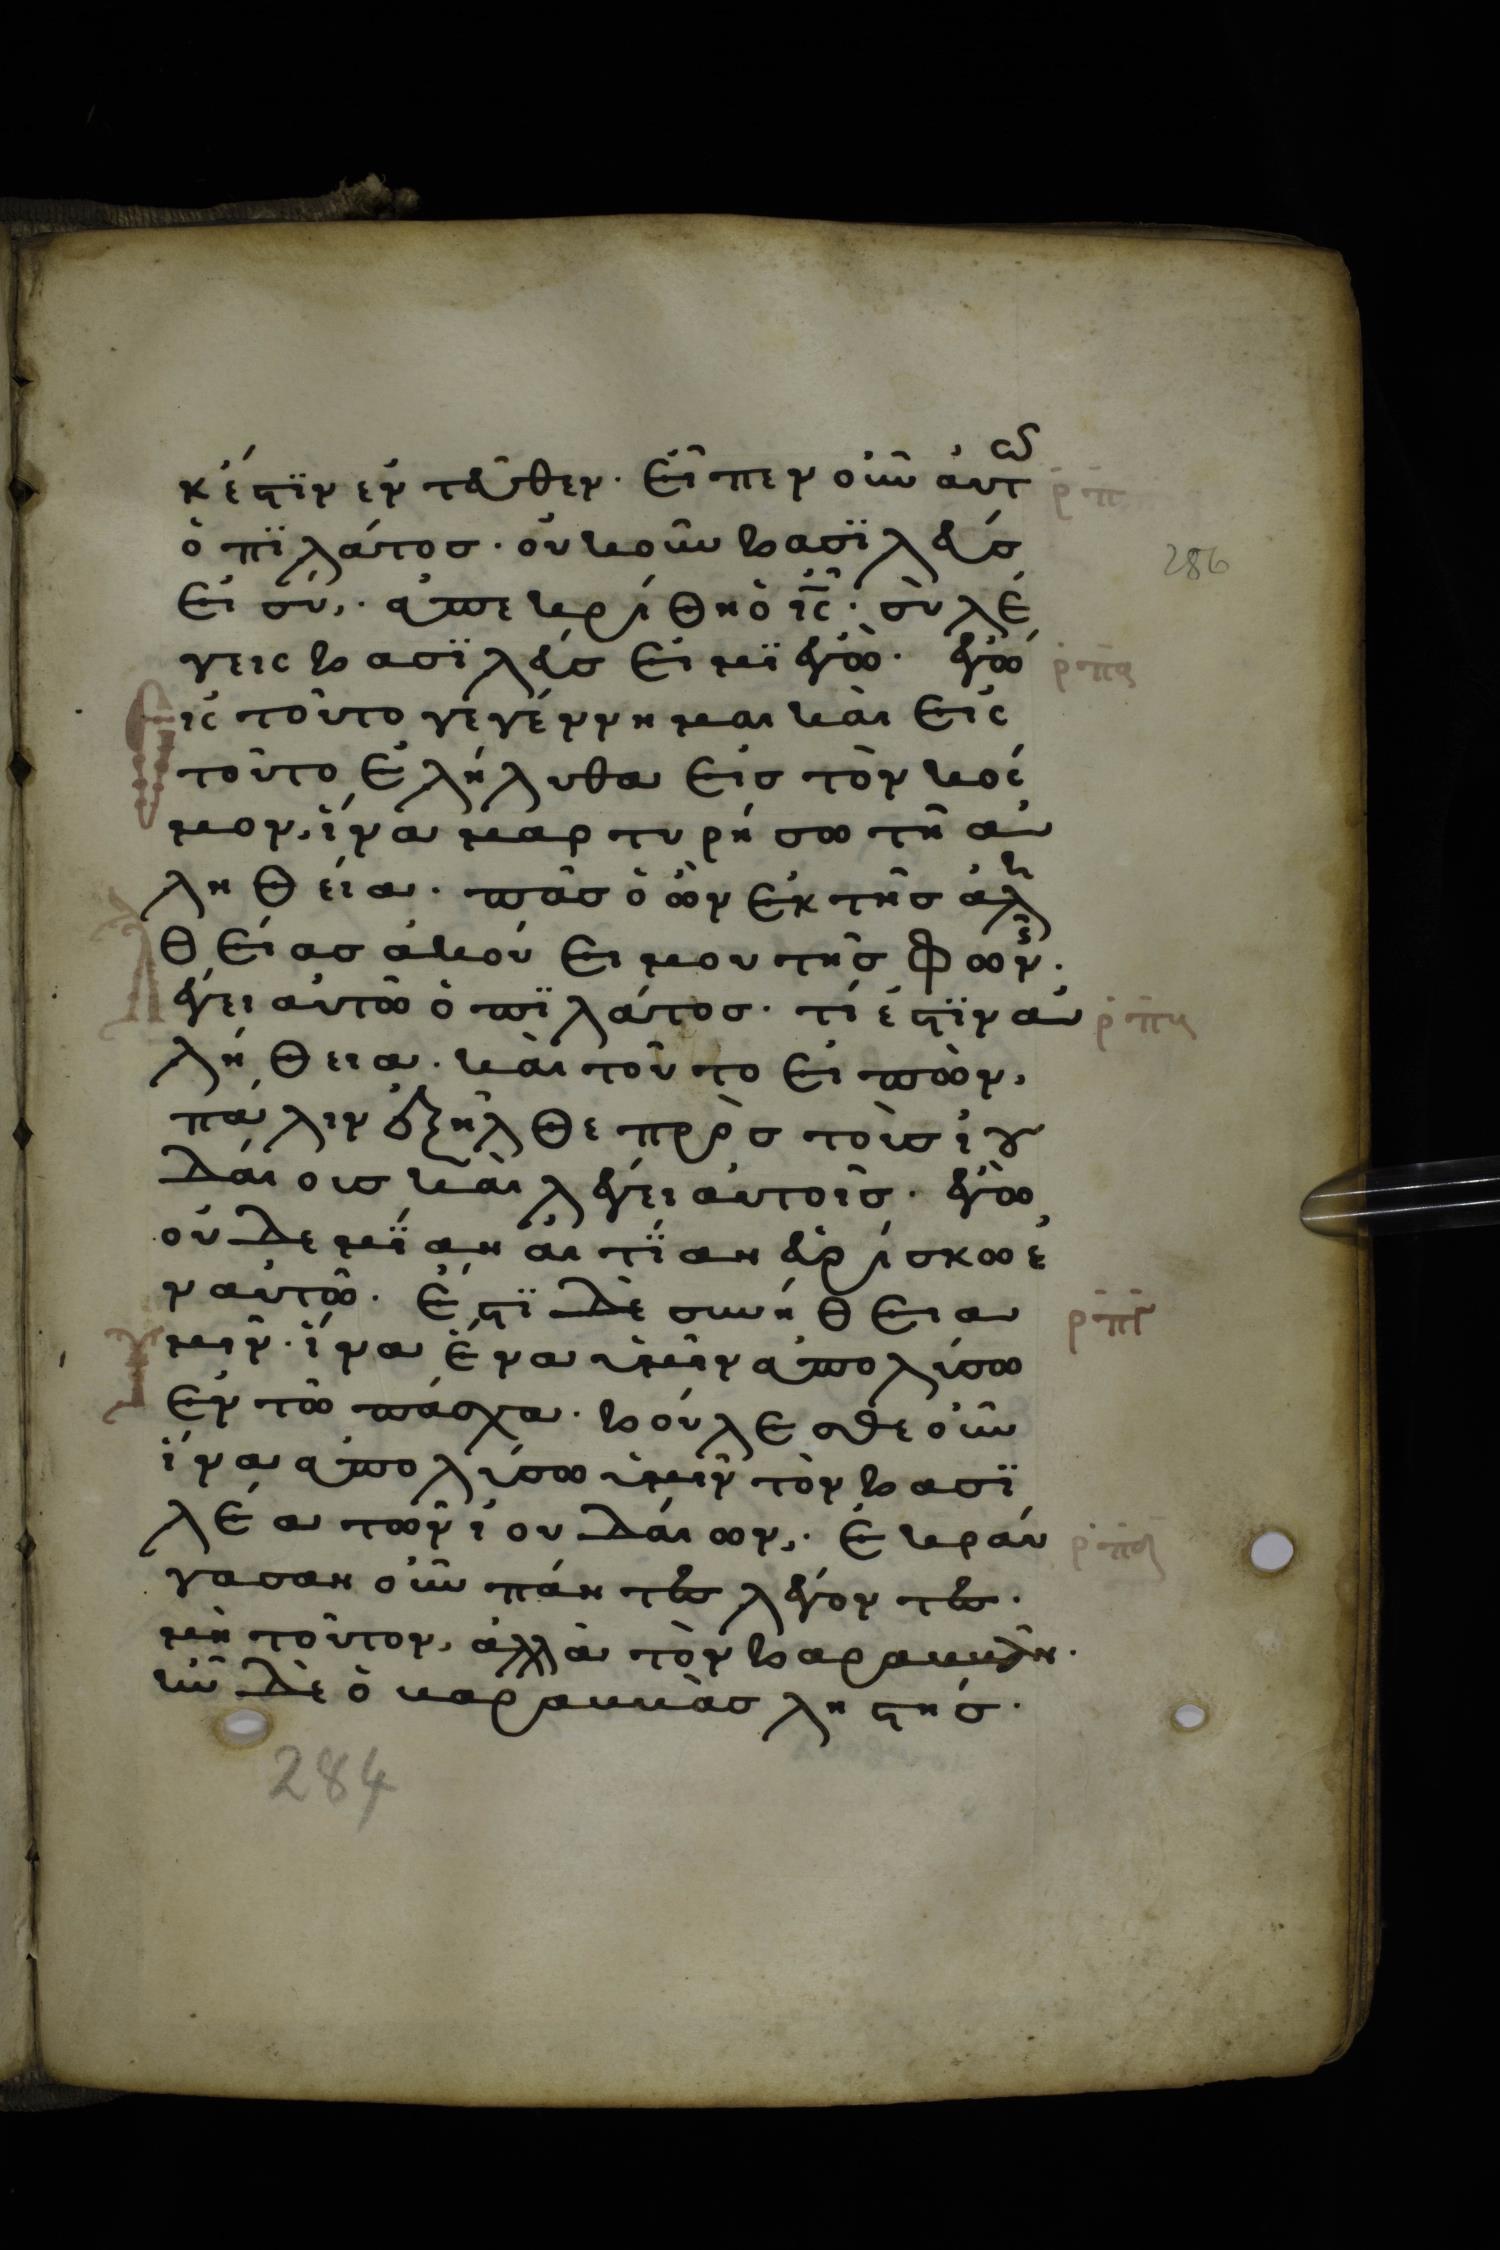 κ έστϊν εντεῦθεν. Εἶπεν οὖν αὐτῶ ρπ
ὁ πϊλάτος. οὐκοῦν βασϊλεύς
286
εἶ σύ,. ἀπεκρίθη ὁ ις̅. σὺ λέ
γεις βασϊλεύς εἰμϊ ἐγὼ. ἐγώ ρπα
Εἰς τοῦτο γεγέννημαι καὶ εἰς
τοῦτο ἐλήλυθα εἰς τὸν κόσ
μον, ἵνα μαρτυρήσω τῆ ἀ
ληθεία. πᾶς ὁ ὢν ἐκ τῆς ἀλη
θείας ἀκούει μου τῆς φωνῆς.
Λέγει αὐτῶ ὁ πϊλάτος. τί ἐστϊν ἀ ρπβ
λήθεια. καὶ τοῦτο εἰπὼν,
πάλιν ἐξῆλθε πρὸς τοὺς ἰου
δαίους καὶ λέγει αὐτοῖς. ἐγὼ
οὐδεμΐαν αἰτΐαν εὑρίσκω ἐ
ν αὐτῶ. Ἔστϊ δὲ συνήθεια ρπγ
Ὑμῖν. ἵνα ἕνα ὑμῖν ἀπολύσω
ἐν τῶ πάσχα. βούλεσθε οὖν
ἵνα ἀπολύσω ὑμῖν τὸν βασϊ
λέα τῶν ἰουδαίων,. Ἐκραύ ρπδ
γασαν οὖν πάντες λέγοντες.
μὴ τοῦτον, ἀλλὰ τὸν βαραββᾶν.
ἦν δὲ ὁ βαραββὰς ληστής.
284